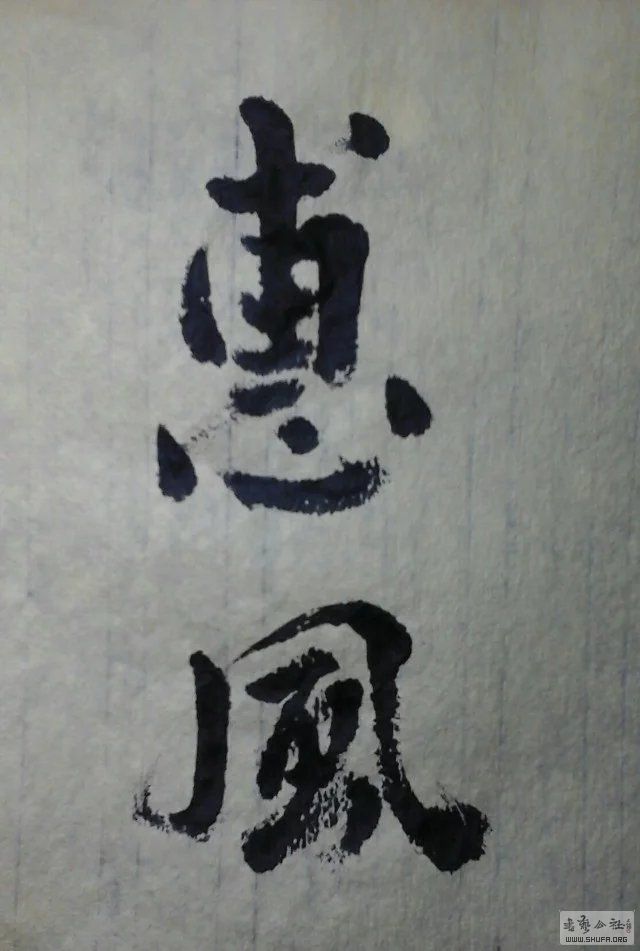 惠風
书艺公社
WWW.SHUFA.ORG